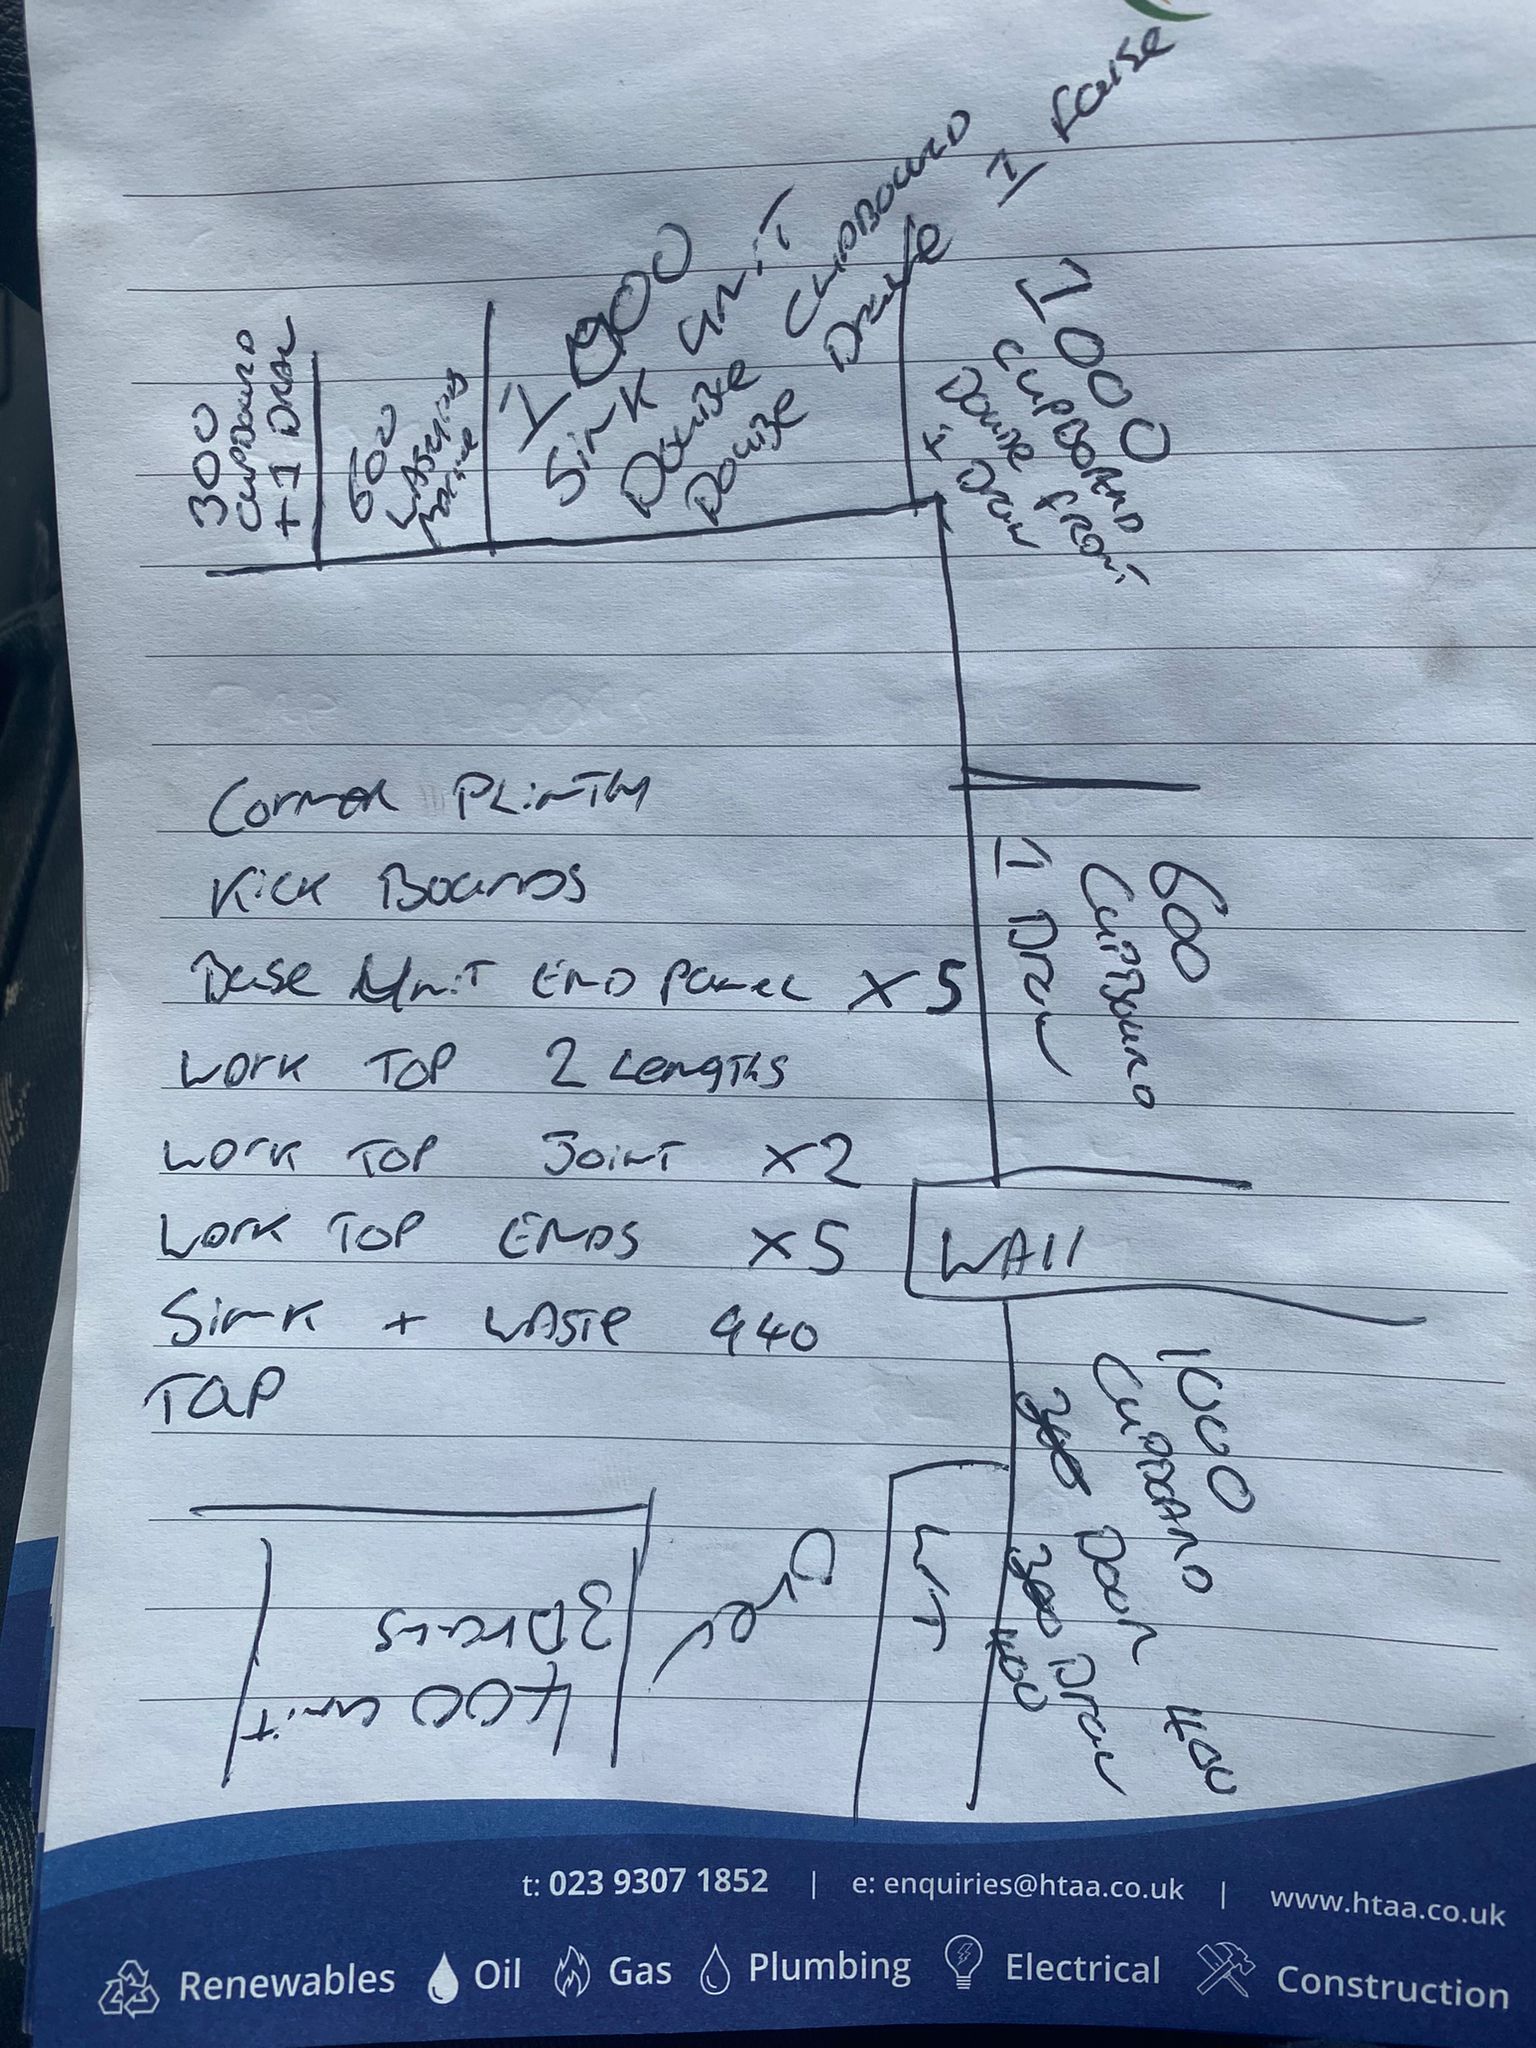 300
CUPBOARD
+ 1 DRAW
600
WASHING
MACHINE
1000
SINK UNIT
DOUBLE CUPBOARD
DOUBLE DRAW 1 FALSE
1000
CUPBOARD
DOUBLE FRONT
+ DRAW
CORNER PLINTH
KICK BOARDS
BASE UNIT END PANEL X 5
WORK TOP 2 LENGTHS
WORK TOP JOINT X2
WORK TOP ENDS X5
SINK + WASTE 940
TAP
600
CUPBOARD
1 DRAW
WALL
1000
CUPBOARD
DOOR 400
DRAW
400
W T
OVEN
400 UNIT
3 DRAWS
t: 023 9307 1852 | e: enquiries@htaa.co.uk | www.htaa.co.uk
Renewables Oil Gas Plumbing Electrical Construction